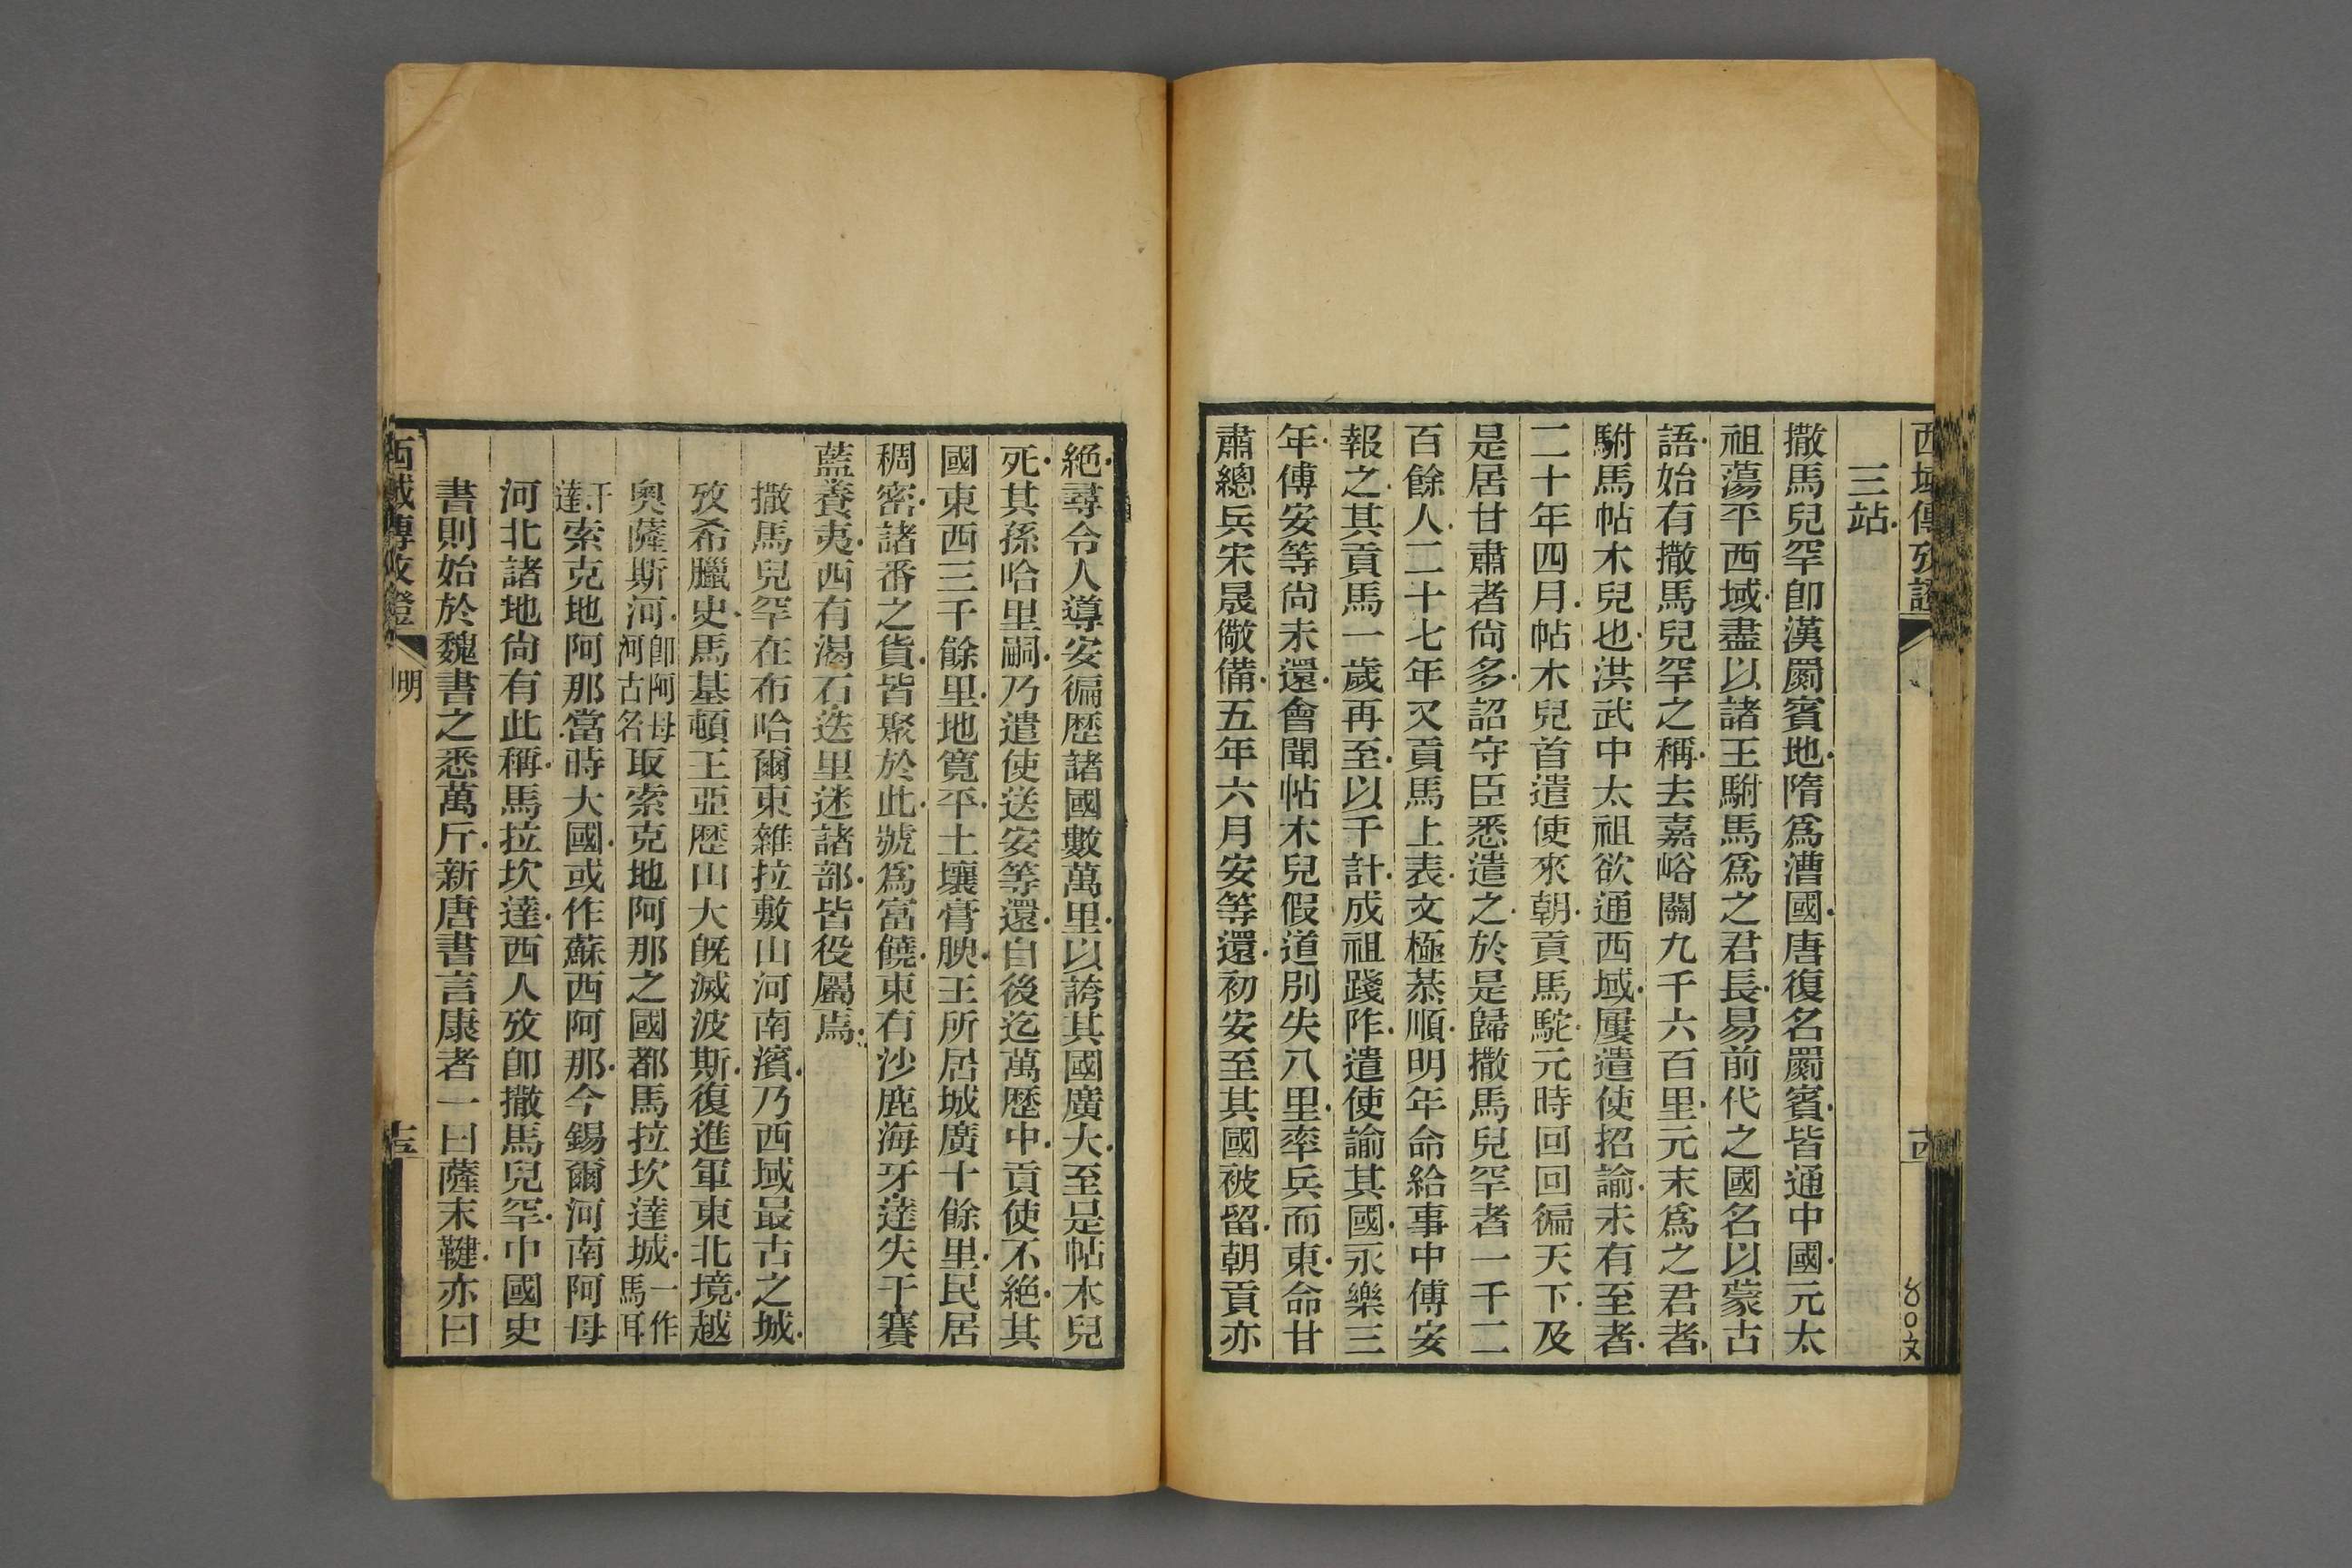 西域傳攷證
三站
撒馬兒罕卽漢罽賓地隋爲漕國唐復名罽賓皆通中國元太
祖蕩平西域盡以諸王駙馬爲之君長易前代之國名以蒙古
語始有撒馬兒罕之稱去嘉峪關九千六百里元末爲之君者
駙馬帖木兒也洪武中太祖欲通西域屢遣使招諭未有至者
二十年四月帖木兒首遣使來朝貢馬駝元時回回徧天下及
是居甘肅者尙多詔守臣悉遣之於是歸撒馬兒罕者一千二
百餘人二十七年又貢馬上表文極恭順明年命給事中傅安
報之其貢馬一歲再至以千計成祖踐阼遣使諭其國永樂三
年傅安等尙未還會聞帖木兒假道別失八里率兵而東命甘
肅總兵宋晟儆備五年六月安等還初安至其國被留朝貢亦
絕尋令人導安徧歷諸國數萬里以誇其國廣大至是帖木兒
死其孫哈里嗣乃遣使送安等還自後迄萬歷中貢使不絕其
國東西三千餘里地寬平土壤膏腴王所居城廣十餘里民居
稠密諸番之貨皆聚於此號爲富饒東有沙鹿海牙達失干賽
藍養夷西有渴石迭里迷諸部皆役屬焉
撒馬兒罕在布哈爾東雜拉敷山河南濱乃西域最古之城
攷希臘史馬基頓王亞歷山大旣滅波斯復進軍東北境越
奧薩斯河卽阿母河古名取索克地阿那之國都馬拉坎達城一作馬耳
干達索克地阿那當時大國或作蘇西阿那今錫爾河南阿母
河北諸地尙有此稱馬拉坎達西人攷卽撒馬兒罕中國史
書則始於魏書之悉萬斤新唐書言康者一曰薩末鞬亦曰
西域傳攷證
明